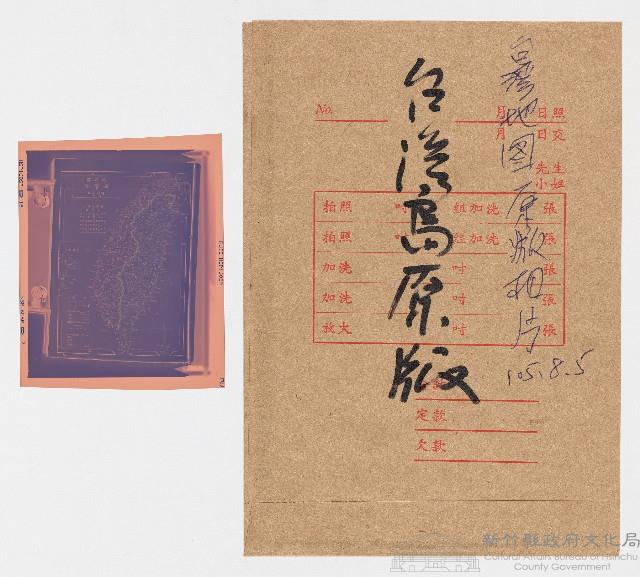 台灣島原版
台灣地図原版相片
105.8.5
No.
月 日照
月 日交
先生
小姐
拍照 吋 組加洗 張
拍照 吋 組加洗 張
加洗 吋 張
加洗 吋 張
放大 吋 張
定款
欠款
新竹縣政府文化局
Cultural Affairs Bureau of Hsinchu
County Government